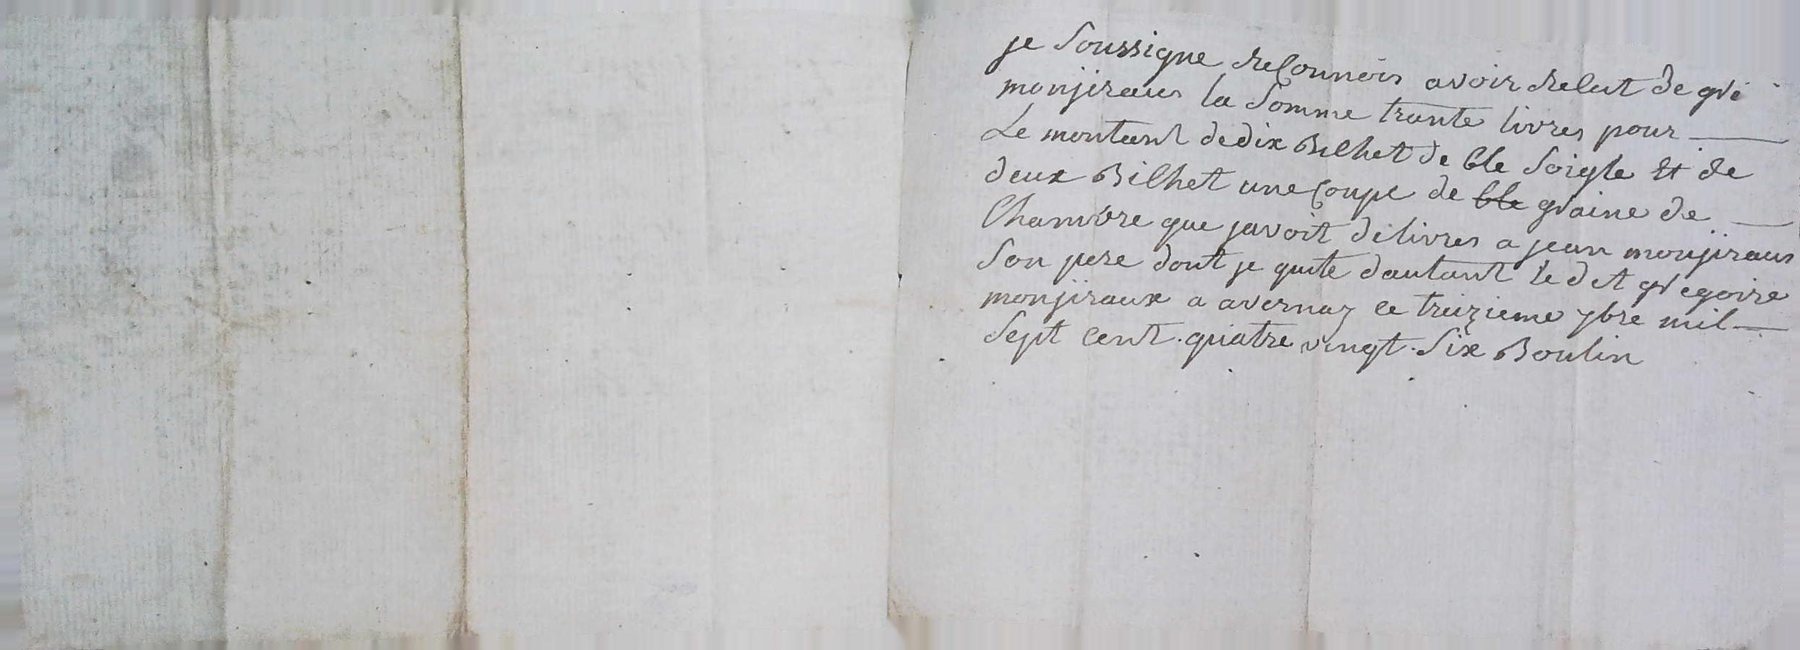 je soussigne reConnois avoir relut de gri
monjiraus la somme trante livres pour
Le montant de dix Bilhet de ble soigle et de
deux Bilhet une Coupe de ble graine de
Chamvre que javoit delivres a jean monjiraus
son pere dont je quite dautant le det gregoire
monjiraux a avernay ce treizieme ybre mil
sept cent quatre vingt six Boulin